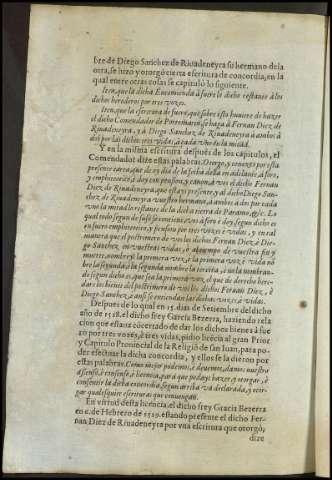 bre de Diego Sanchez de Riuadeneyra su hermano dela
otra, se hizo y otorgò cierta escritura de concordia, en la
qual entre otras cosas se capitulò lo siguiente.
Iten, que la dicha Encomienda à fuere le dicho restante à los
dichos herederos por tres vozes.
Iten, que la escritura de fuero, que sobre esto huuiere de hazer
el dicho Comendador de Portomarin, se haga à Fernan Diez de
Riuadeneyra, y à Diego Sanchez de Riuadeneyra à ambos à
dos por las dichas tres vidas, à cada vno en la mitad.
Y en la misma escritura despues de los capitulos, el
Comendador dize estas palabras. Otorgo, y conozco por esta
presente carta, que de oy dia de la fecha della en adelante, à foro,
y emphiteosis, à dicho Fernan
Diez de Riuadeneyra, que estays presente, y al dicho Diego San-
chez de Riuadeneyra vuestro hermano, à ambos à dos, por cada
vno la mitad los restantes de la dicha tierra de Paramo, &c. Lo
qual todo segun de suso se contiene, vos afero è doy segun dicho es
en fuero emphiteosis, y pension por tres vozes è vidas, y en tal
manera que el postrimero de vos los dichos Fernan Diez, è Die-
go Sanchez, en vuestras vidas, ò al tiempo de vuestra fin y
muerte, nombre y la primera voz, è la primera voz, è vida nõ
bre la segunda, è la segunda nombre la tercera, è en la nombran-
do segun dicho es, que sea la primera voz, el que de derecho here-
dare los bienes del postrimero de vos los dichos Fernan Diez, è
Diego Sanchez, è ansi se entiendan las dichas vozes è vidas.
Despues de lo qual en 15. dias de Setiembre del dicho
año de 1528. el dicho frey Garcia Bezerra, haziendo rela-
cion que estaua cõcertado de dar los dichos bienes à fue
ro por tres vozes, è tres vidas, pidio licẽcia al gran Prior
y Capitulo Prouincial de la Religiõ de san Iuan, para po-
der efectuar la dicha concordia, y ellos se la dieron por
estas palabras. Como mejor podemos, è deuemos, damos nuestro
assenso, è consenso, è licencia, para que podays hazer, y otorgar, è
consentir la dicha concordia, segun arriba và declarada, y otor-
gar qualesquier escrituras que conuengan.
En virtud desta licencia, el dicho frey Garcia Bezerra
en 6. de Hebrero de 1529. estando presente el dicho Fer-
nan Diez de Riuadeneyra por vna escritura que otorgò,
dize